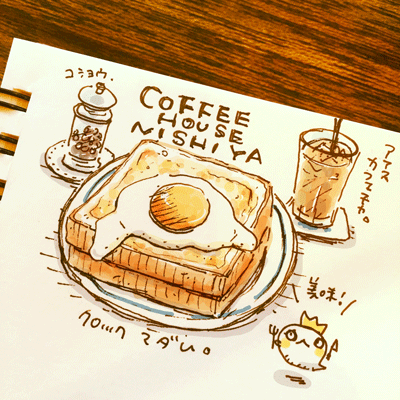 コショウ.
COFFEE
HOUSE
NISHIYA
アイス
カフェオレ。
美味!
クロック マダム。